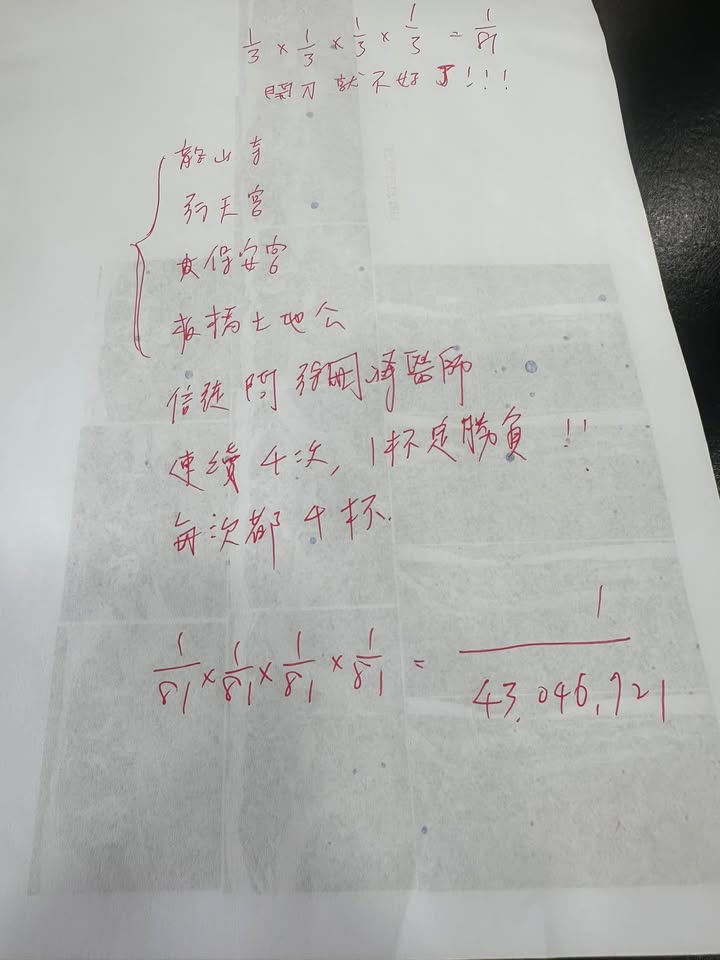 1/3 × 1/3 × 1/3 × 1/3 = 1/81
開刀就不好了!!!
龍山寺
行天宮
保安宮
板橋土地公
信徒問 醫師
連續4次, 1杯定勝負!!
每次都4杯.
1/81 × 1/81 × 1/81 × 1/81 = 1/43,046,721